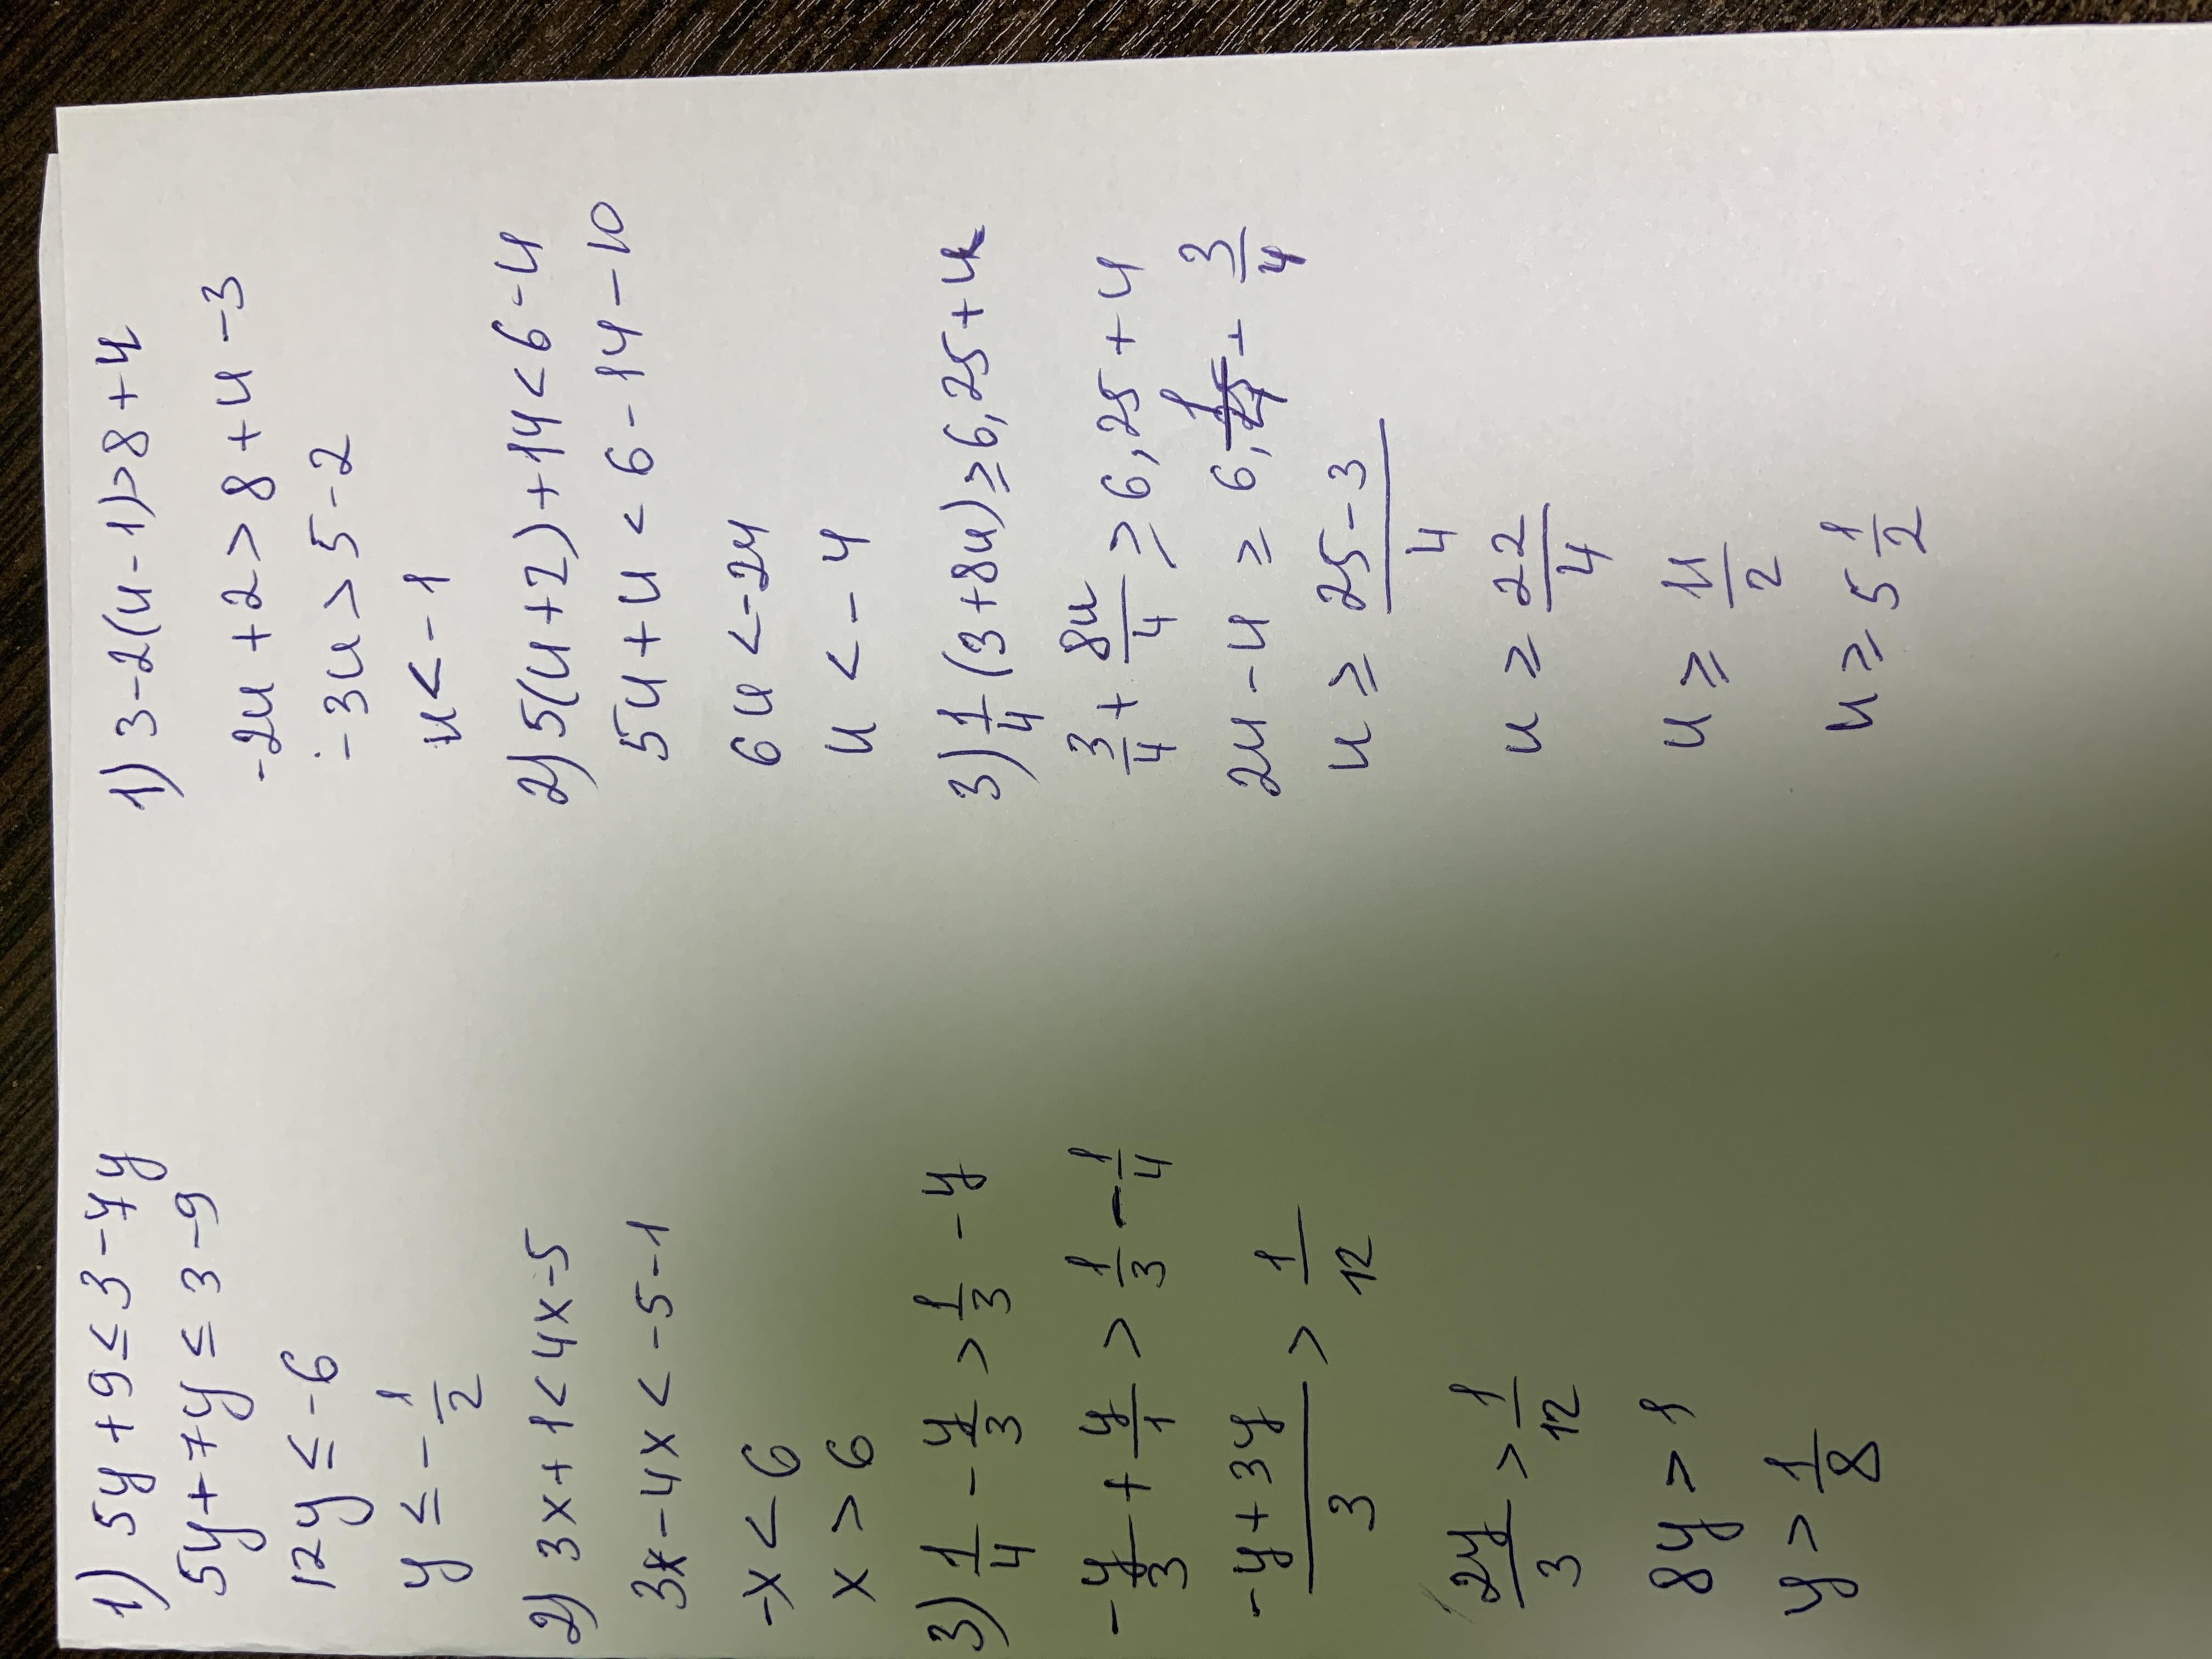 1) 5y + 9 ≤ 3 - 7y
5y + 7y ≤ 3 - 9
12y ≤ -6
y ≤ - 1/2
2) 3x + 1 < 4x - 5
3x - 4x < -5 - 1
-x < 6
x > 6
3) 1/4 - y/3 > 1/3 - y
- y/3 + y/1 > 1/3 - 1/4
(-y + 3y)/3 > 1/12
2y/3 > 1/12
8y > 1
y > 1/8
1) 3 - 2(u - 1) > 8 + u
-2u + 2 > 8 + u - 3
-3u > 5 - 2
u < -1
2) 5(u + 2) + 14 < 6 - u
5u + u < 6 - 14 - 10
6u < -24
u < -4
3) 1/4 (3 + 8u) ≥ 6,25 + u
3/4 + 8u/4 ≥ 6,25 + u
2u - u ≥ 6, + 3/4
u ≥ (25 - 3)/4
u ≥ 22/4
u ≥ 11/2
u ≥ 5 1/2